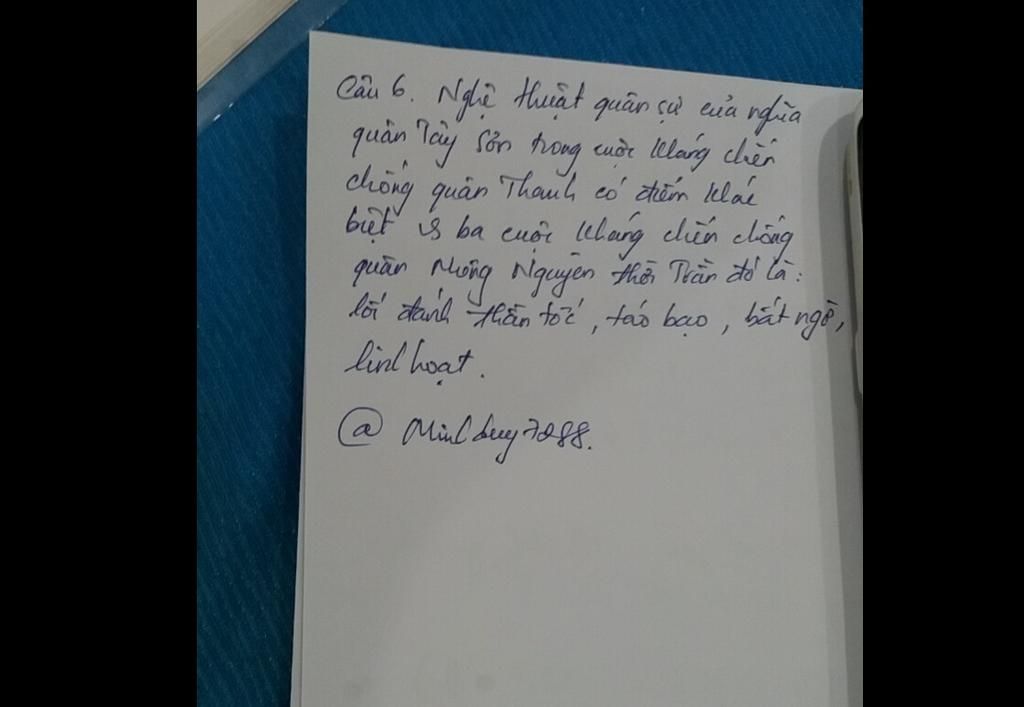 Câu 6. Nghệ thuật quân sự của nghĩa
quân Tây Sơn trong cuộc kháng chiến
chống quân Thanh có điểm khác
biệt vs ba cuộc kháng chiến chống
quân Mông Nguyên thời Trần đó là:
lối đánh thần tốc, táo bạo, bất ngờ,
linh hoạt.
@ Minhduy7288.